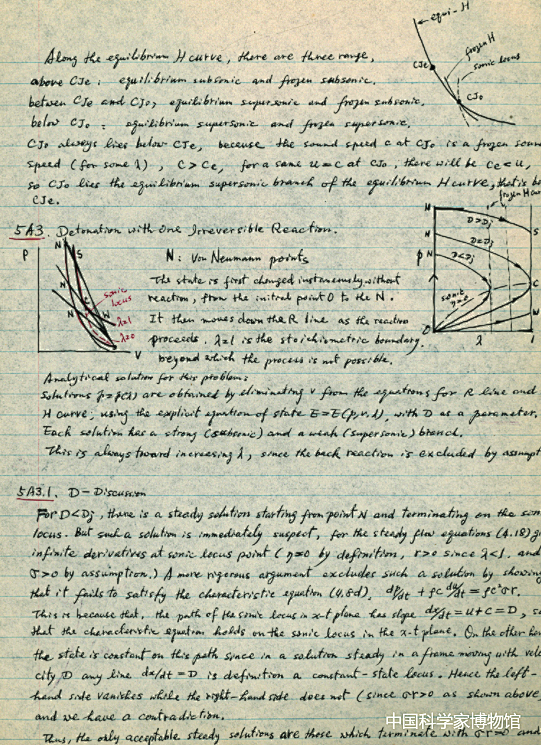 equi-H
Along the equilibrium H curve, there are three range,
frozen H
sonic locus
above CJe: equilibrium subsonic and frozen subsonic.
CJe
between CJe and CJo, equilibrium supersonic and frozen subsonic,
CJo
below CJo: equilibrium supersonic and frozen supersonic.
CJo always lies below CJe, because the sound speed c at CJo is a frozen soun
speed (for some λ), C>Ce, for a same u=c at CJo, there will be Ce<u,
so CJo lies the equilibrium supersonic branch of the equilibrium H curve, that is be
CJe.
frozen H cur
5A3. Detonation with One Irreversible Reaction.
P
N
S
N
N
sonic locus
W
λ=1
λ=0
V
N: Von Neumann points
The state is first changed instantaneously without
reaction, from the initial point O to the N.
It then moves down the R line as the reaction
proceeds. λ=1 is the stoichiometric boundary,
beyond which the process is not possible.
N
D>Dj
S
N
D=Dj
P
N
D<Dj
C
sonic
W
O
λ
1
Analytical solution for this problem:
Solutions p=p(λ) are obtained by eliminating v from the equations for R line and
H curve, using the explicit equation of state E=E(p,v,λ), with D as a parameter.
Each solution has a strong (subsonic) and a weak (supersonic) branch.
This is always toward increasing λ, since the back reaction is excluded by assumpt
5A3.1. D-Discussion
For D<Dj, there is a steady solution starting from point N and terminating on the son
locus. But such a solution is immediately suspect, for the steady flow equations (4.18) g
infinite derivatives at sonic locus point (η=0 by definition, r>0 since λ<1, and
σ>0 by assumption.) A more rigorous argument excludes such a solution by showing
that it fails to satisfy the characteristic equation dp/dt + ρc du/dt = ρc²σr.
This is because that, the path of the sonic locus in x-t plane has slope dx/dt=u+c=D, so
that the characteristic equation holds on the sonic locus in the x-t plane. On the other han
the state is constant on this path since in a solution steady in a frame moving with velo
city D any line dx/dt=D is definition a constant-state locus. Hence the left-
hand side vanishes while the right-hand side does not (since σr>0 as shown above
and we have a contradiction.
Thus, the only acceptable steady solutions are those which terminate with σr=0 and
中国科学家博物馆